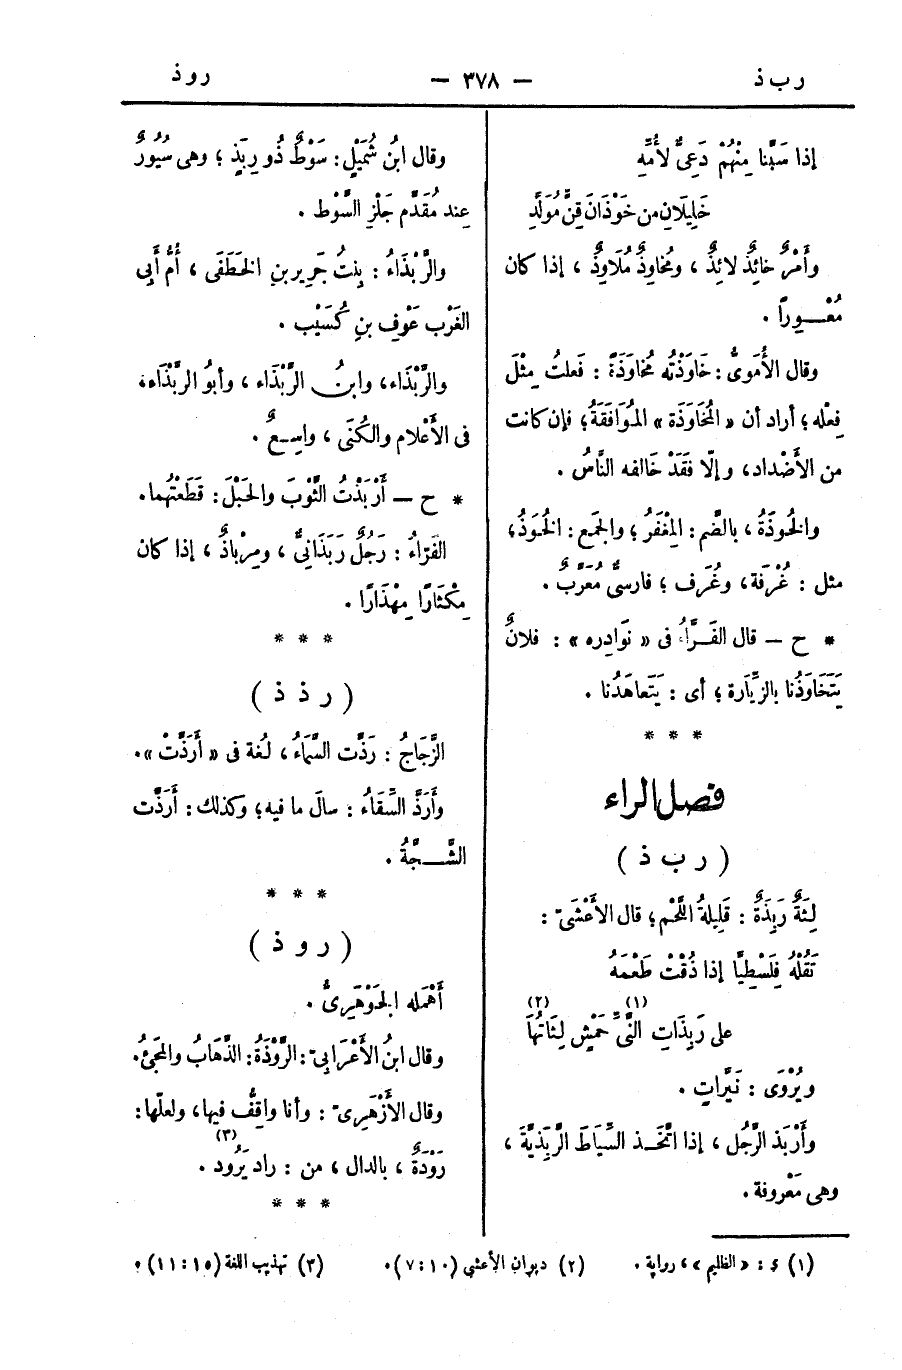 ر ب ذ
— ٣٧٨ —
ر و ذ
إذا سَبَّنا مِنْهُمْ دَعِىٌّ لأُمِّهِ
خَلِيلَانِ من خَوْذَانَ قِنٌّ مُوَلَّدُ
وأَمْرٌ خائِذٌ لائِذٌ ، ومُخاوِذٌ مُلَاوِذٌ ، إذا كان
مُعْـــوِرًا .
وقال الأُمَوىُّ : خَاوَذْتُه مُخَاوَذَةً : فَعلتُ مِثْلَ
فِعْله ؛ أراد أن « المُخَاوَذَة » المُوَافَقَةُ ؛ فإن كانت
من الأَضْداد، و إلّا فَقَدْ خَالفه النَّاسُ .
والخُوذَةُ ، بالضَّم : المِغْفَرُ ؛ والجَمع : الخُوَذُ ؛
مثل : غُرْفَة، وغُرَف ؛ فارسىٌّ مُعَرَّبٌ .
* ح — قال الفَــرَّاءُ فى « نَوَادِره » : فلانٌ
يَتَخَاوَذُنا بالزِّيَارة ؛ أى : يَتَعاهَدُنا .
* * *
فصل الراء
( ر ب ذ )
لِثَةٌ رَبِذَةٌ : قَلِيلةُ اللَّحْم ؛ قال الأَعْشَىَ :
تَخَلْهُ فِلَسْطِيًّا إذا ذُقْتَ طَعْمَهُ
على رَبِذَاتِ النَّىِّ (١) حَمْشٍ لِثَاتُهَا (٢)
ويُرْوَى : نَيِّراتٍ .
وأَرْبَذ الرَّجُل ، إذا اتَّخَــذ السِّيَاطَ الرَّبَذِيَّةَ ،
وهى مَعْروفة .
وقال ابنُ شُمَيْلٍ : سَوْطٌ ذُو رِبَذٍ ؛ وهى سُيُورٌ
عِند مُقَدَّم جَلْزِ السَّوْط .
والرَّبْذَاءُ : بِنتُ جَرِير بنِ الخَطَفَى ، أُمُّ أَبى
الغَرْب عَوْفِ بنِ كُسَيْب .
والرَّبْذَاء، وابنُــ الرَّبْذَاء ، وأبوُ الرَّبْذَاء،
فى الأَعْلام والكُنَى ، واسِــعٌ .
* ح — أَرْبَذْتُ الثَّوْبَ والحَبْلَ : قَطَعْتُهما.
الفَرّاءُ : رَجُلٌ رَبَذَانِىٌّ ، ومِرْباذٌ ، إذا كان
مِكْثَارًا مِهْذَارًا .
* * *
( ر ذ ذ )
الزَّجَاجُ : رَذَّت السَّمَاءُ ، لُغة فى « أَرَذَّتْ » .
وأَرَذَّ السِّقَاءُ : سالَ ما فيه ؛ وكذلك : أَرَذَّت
الشَّـــجَّةُ .
* * *
( ر و ذ )
أَهْمَله الجَوْهَرِىُّ .
وقال ابنُ الأَعْرَابىّ : الرَّوْذَةُ : الذَّهَابُ والمَجِئُ.
وقال الأَزْهَرِىّ : وأنا واقِفٌ فيها، ولعلّها :
رَوْدَةٌ ، بالدال ، من : راد يَرُود (٣) .
* * *
(١) ى : « الظليم » ، رواية .
(٢) ديوان الأعشى (٧:١٠) .
(٣) تهذيب اللغة (١١:١٥) .